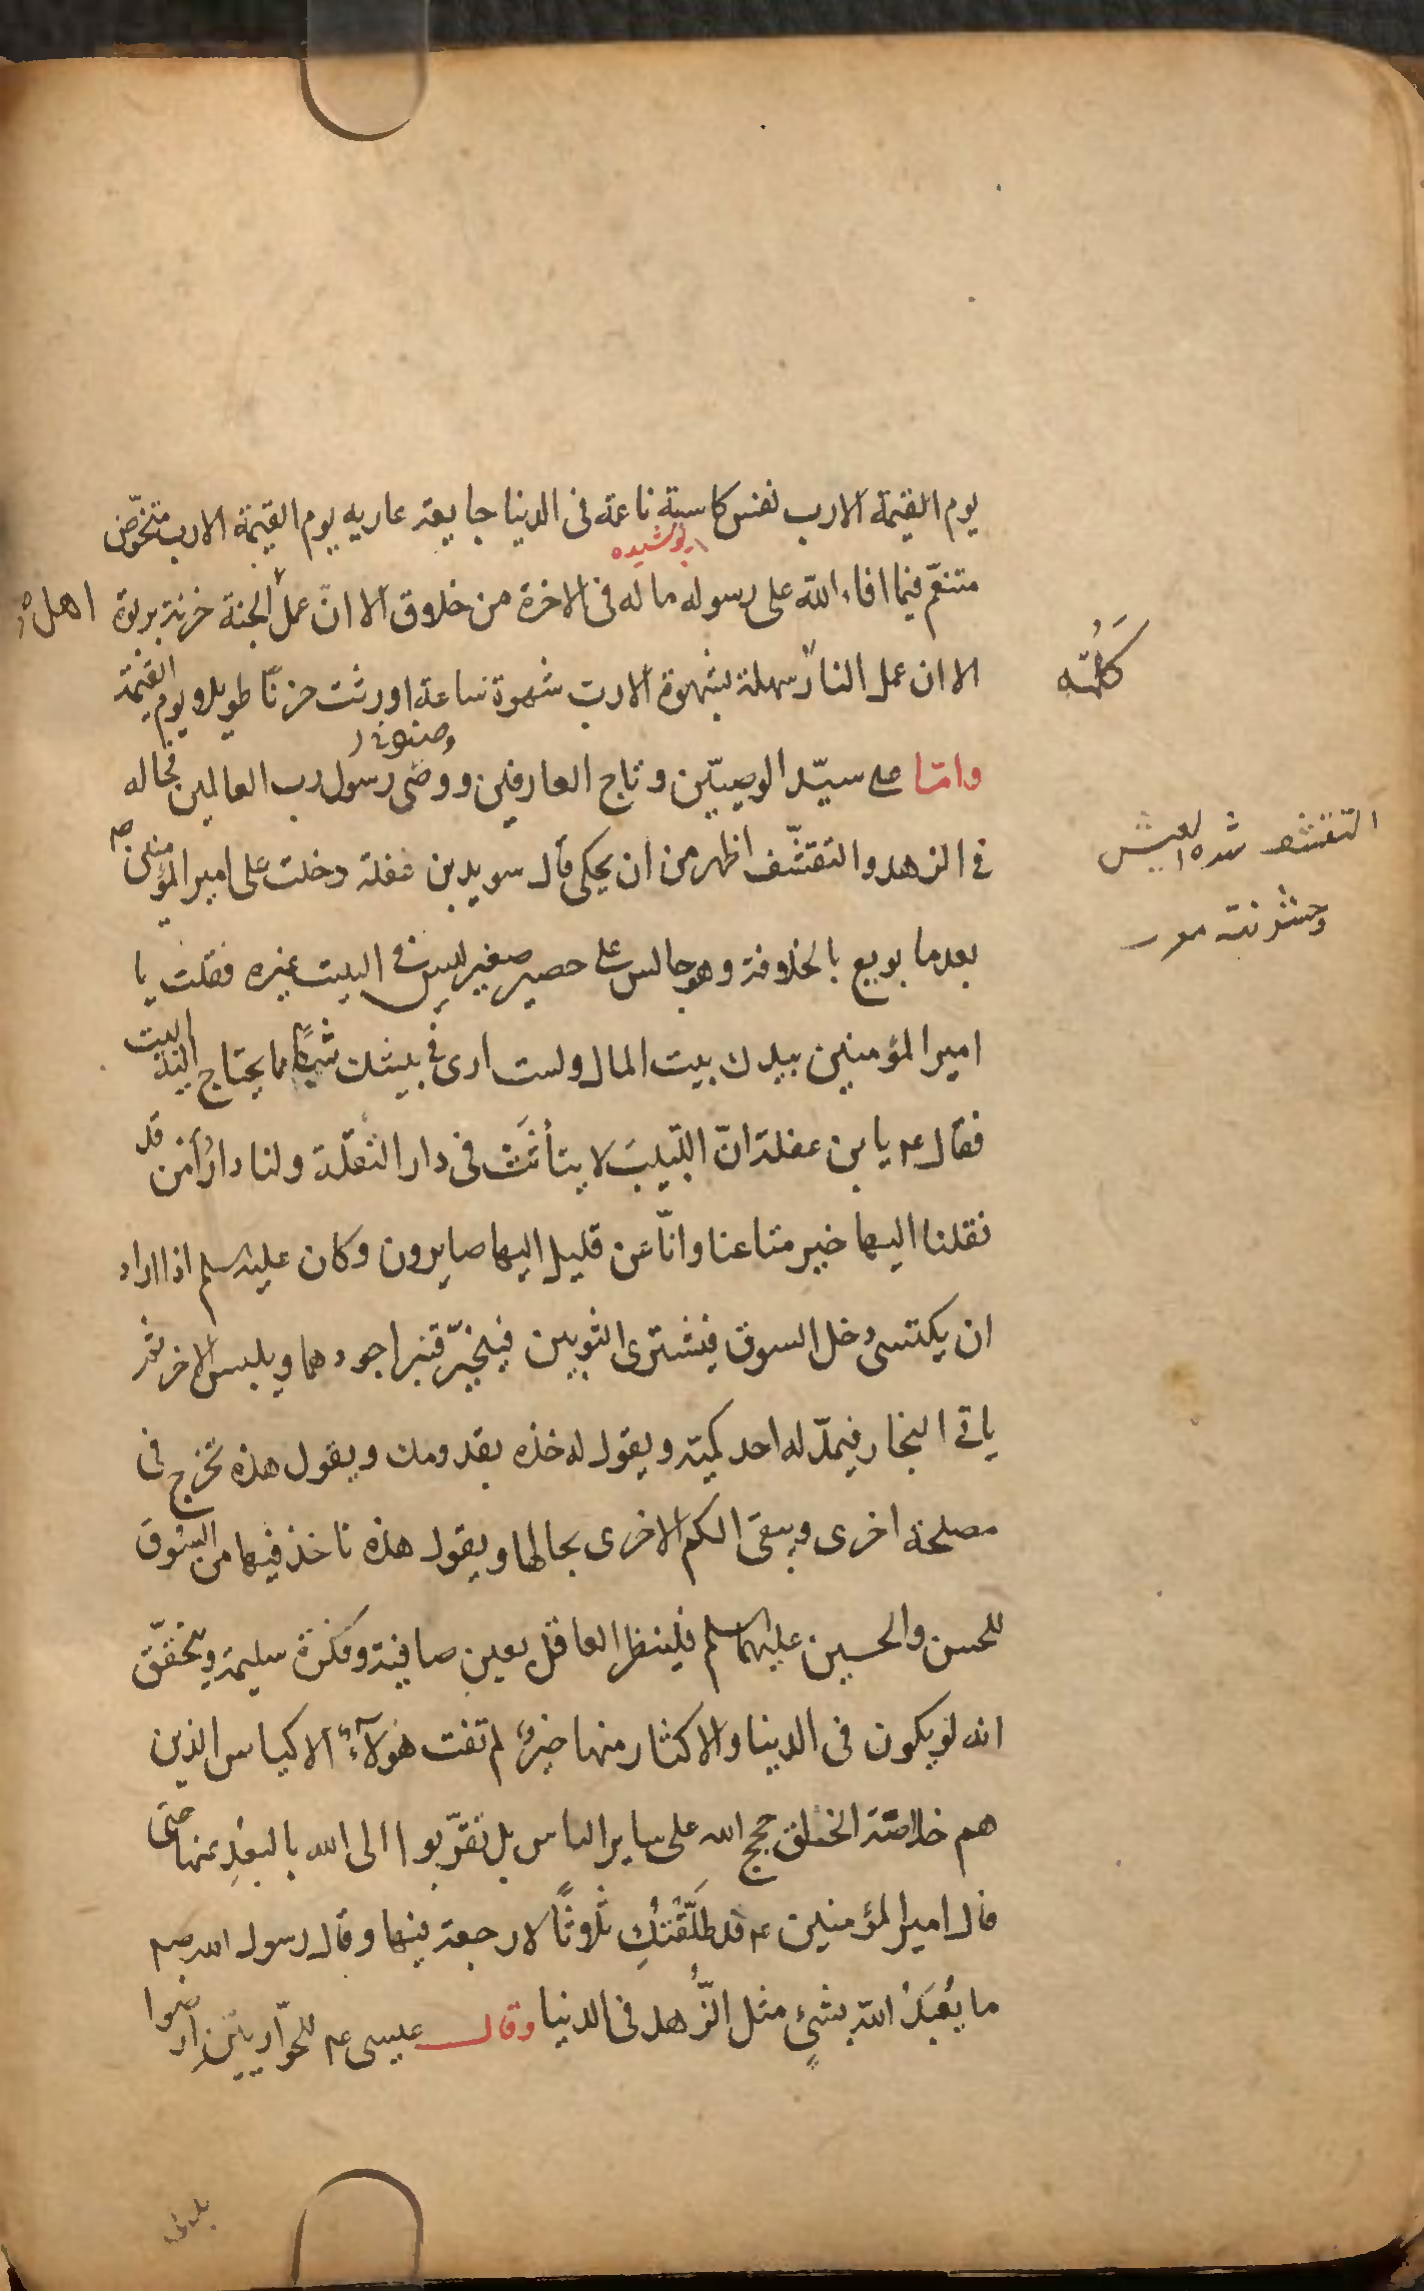 يوم القيمة الارب نفس كاسية ناعمة فى الدنيا جايعة عاريه يوم القيمة الارب متخوّض
پوشيده
متنعّم فيما افاء الله على رسوله ما له فى الاخرة من خلاق الا انّ عمل الجنة حزنة بربوة
اهل
الا ان عمل النار سهلة بشهوة الا رب شهوة ساعة اورثت حزنًا طويلا يوم القيمة
كلمته
وصنو
وامّا على سيّد الوصيّين وتاج العارفين ووصّى رسول رب العالمين فحاله
فى الزهد والتقشّف اظهر من ان يحكى قال سويد بن غفلة دخلت على امير المؤمنين ع
التقشف شدة العيش
وخشونته
بعد ما بويع بالخلافة وهو جالس على حصير صغير ليس فى البيت غيره فقلت يا
امير المؤمنين بيدك بيت المال ولست ارى فى بيتك شيئًا مما يحتاج اليه البيت
فقال ع يابن غفلة انّ اللبيبَ لا يتأثّث فى دار النقلة ولنا دارُ أمن قد
نقلنا اليها خير متاعنا وانّا عن قليل اليها صايرون وكان عليه سلم اذا اراد
ان يكتسى دخل السوق فيشترى الثوبين فيخيّر قنبر اجودهما ويلبس الاخر ثم
ياتى النجار فيمدّ له احد كميّه ويقول له خذه بقدومك ويقول هذه تخرج فى
مصلحة اخرى ويبقى الكم الاخرى بحالها ويقول هذه ناخذ فيها من السّوق
للحسن والحسين عليهما سلم فلينظر العاقل بعين صافية وفكرة سليمة ويتحقّق
انه لو يكون فى الدنيا والاكثار منها خيرٌ لم تفت هؤلآءِ الاكياس الذين
هم خلاصة الخلق حجج الله على ساير الناس بل تقرّبوا الى الله بالبعْدِ عنها حتى
قال امير المؤمنين ع قد طَلَّقْتُكِ ثلاثًا لا رجعة فيها وقال رسول الله صم
ما يُعْبَدُ الله بشئٍ مثل الزُّهد فى الدنيا وقال عيسى ع للحوّاريّين ارضوا